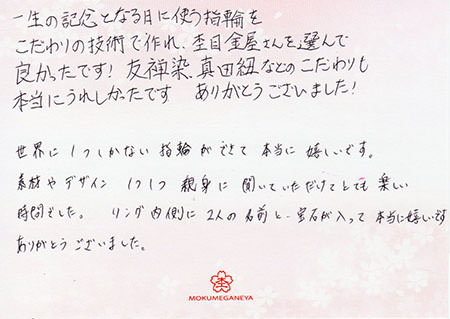 一生の記念となる日に使う指輪を
こだわりの技術で作れ、杢目金屋さんを選んで
良かったです! 友禅染、真田紐などのこだわりも
本当にうれしかったです ありがとうございました!
世界に1つしかない指輪ができて本当に嬉しいです。
素材やデザイン 1つ1つ 親身に聞いていただけてとても楽しい
時間でした。 リング内側に2人の名前と宝石が入って本当に嬉しいです
ありがとうございました。
MOKUMEGANEYA